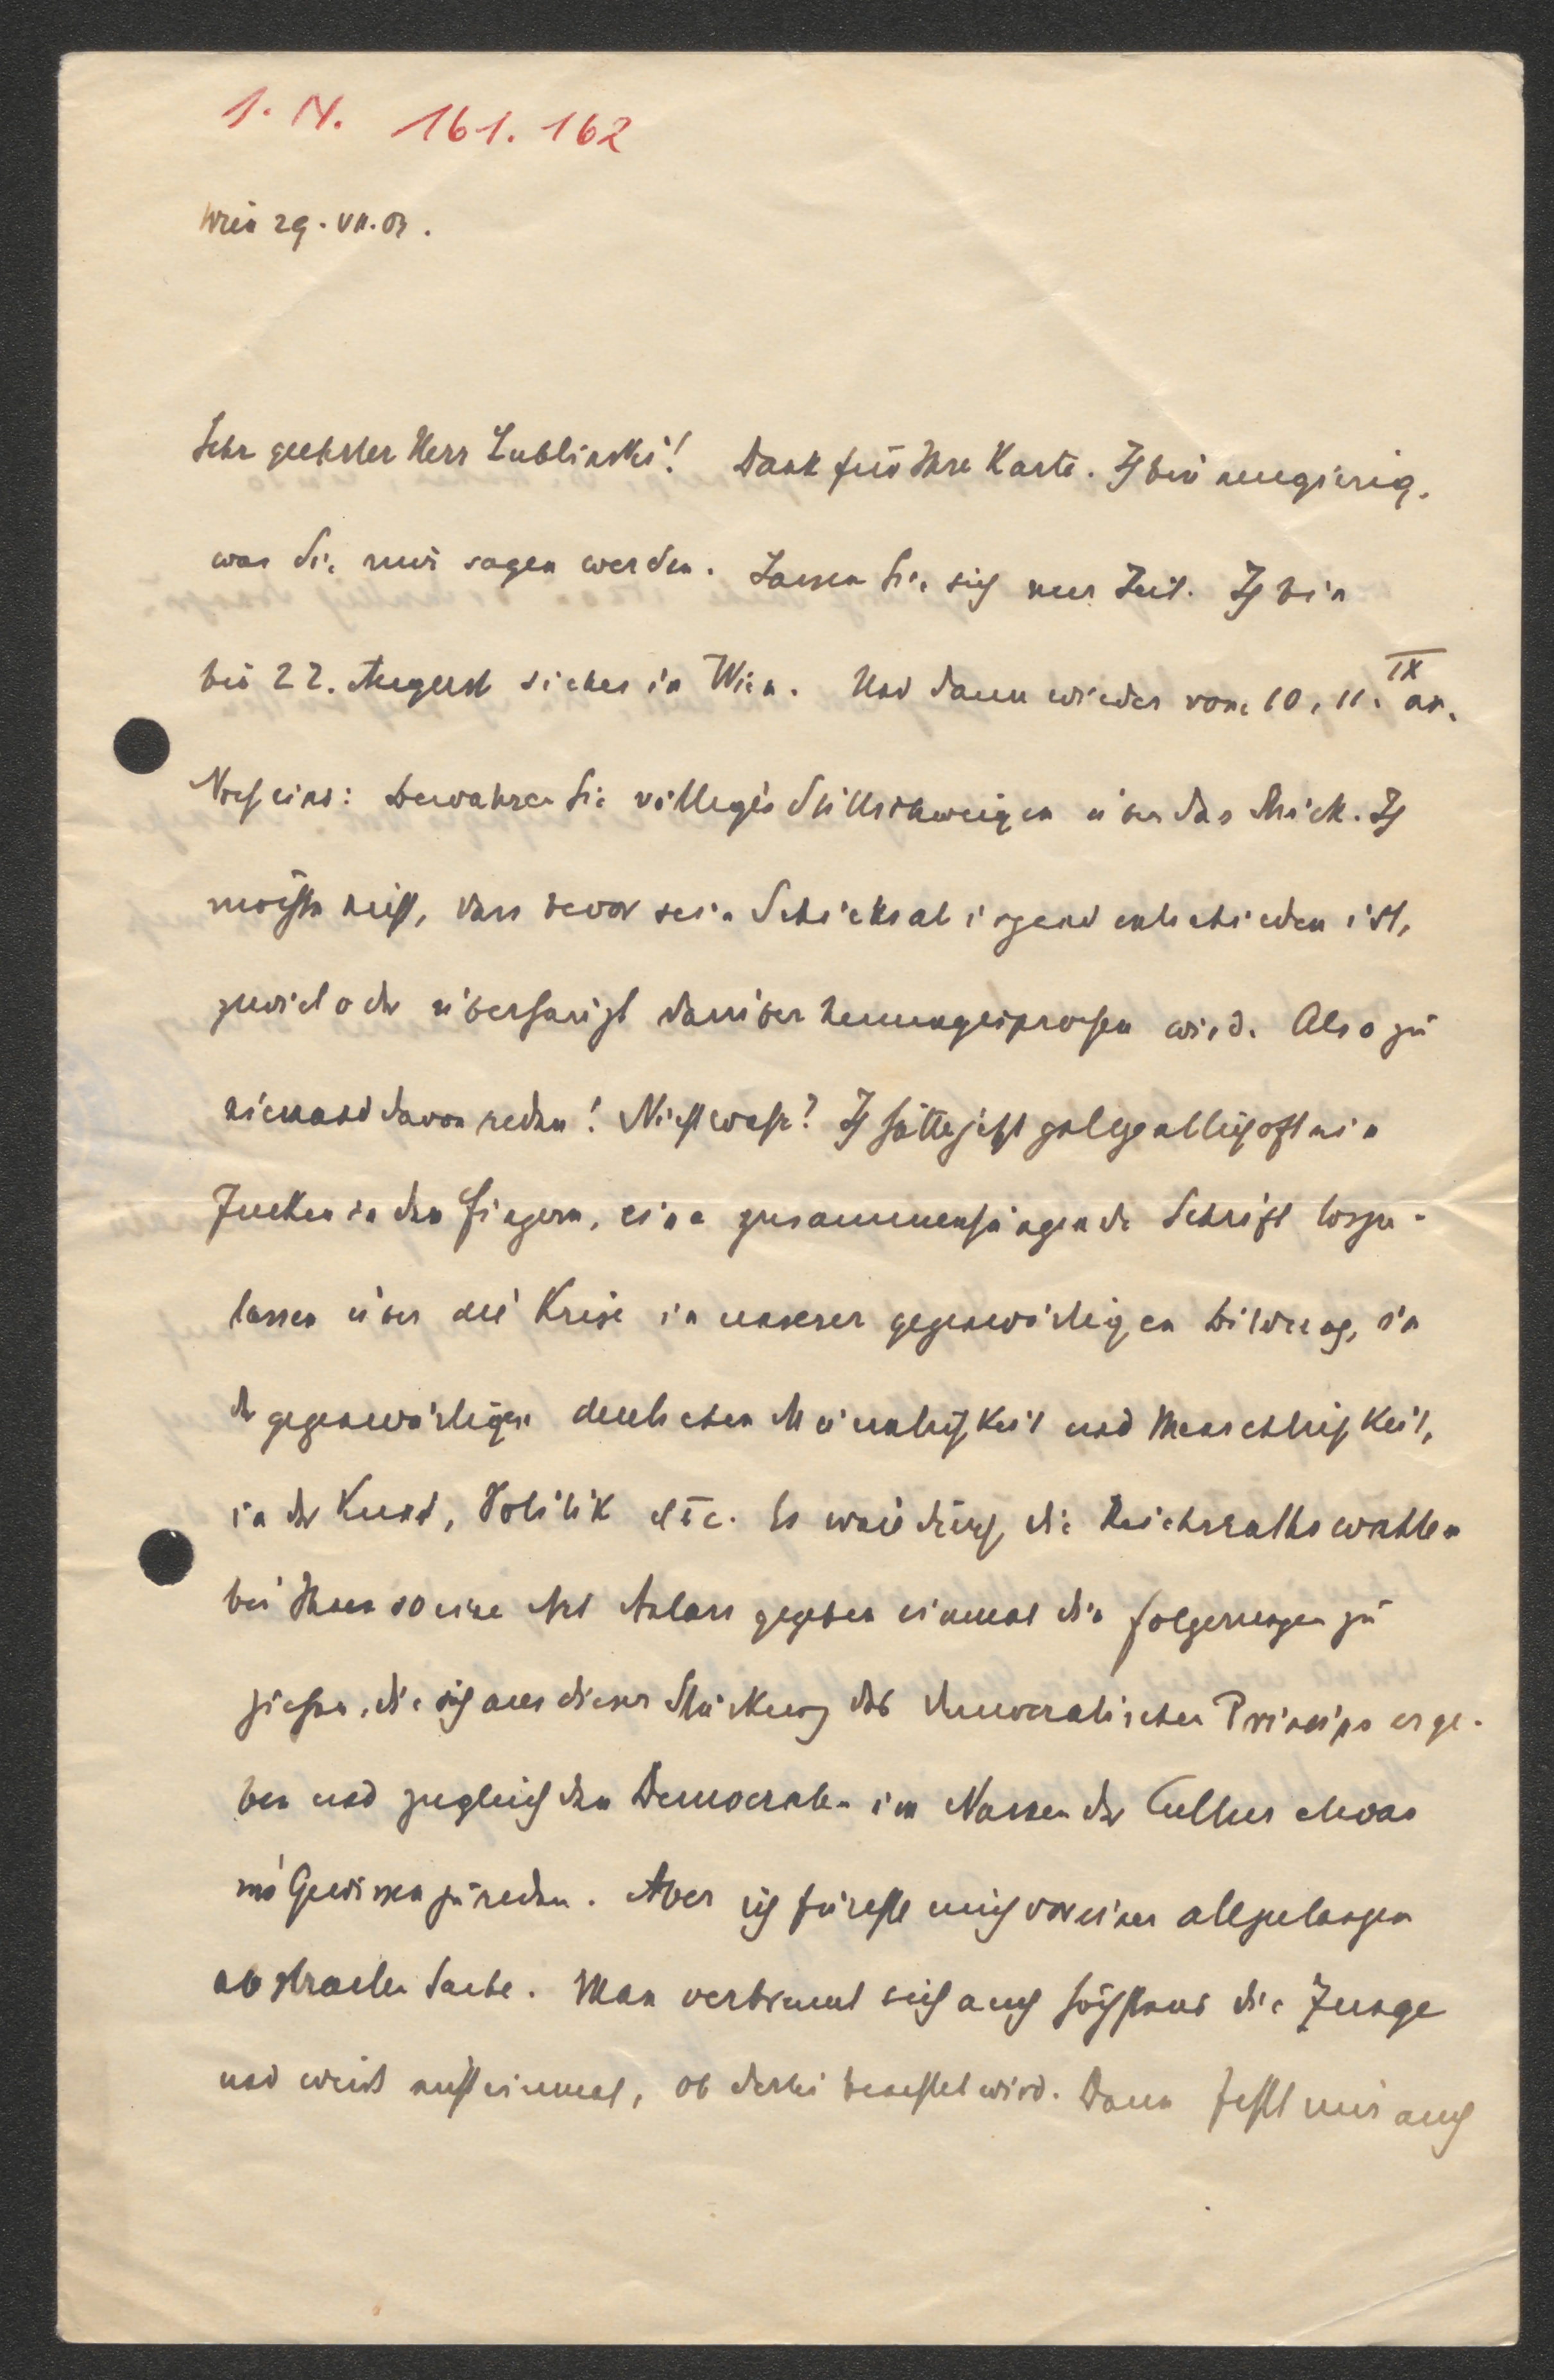 I. N. 161.162
Wien 29. VII. 03.
Sehr geehrter Herr Lublinski! Dank für Ihre Karte. Ich bin neugierig,
was Sie mir sagen werden. Lassen Sie sich nur Zeit. Ich bin
bis 22. August sicher in Wien. Und dann wieder vom 10, 11. IX an.
Noch eins: bewahren Sie völliges Stillschweigen über das Stück. Ich
möchte nicht, dass bevor sein Schicksal irgend entschieden ist,
zuviel oder überhaupt darüber herumgesprochen wird. Also zu
niemand davon reden! Nicht wahr? Ich hätte jetzt gelegentlich oft ein
Jucken in den Fingern, eine zusammenhängende Schrift loszu-
lassen über die Krise in unserer gegenwärtigen Bildung, in
der gegenwärtigen deutschen Männlichkeit und Menschlichkeit,
in der Kunst, Politik etc. Es wäre durch die Reichsrathswahlen
bei Ihnen so eine Art Anlass gegeben einmal die Folgerungen zu
ziehen, die sich aus dieser Stärkung des democratischen Princips erge-
ben und zugleich den Democraten im Namen der Cultur etwas
ins Gewissen zu reden. Aber ich fürchte mich vor einer allzulangen
abstracten Sache. Man verbrennt sich auch höchstens die Zunge
und weiß nicht einmal, ob derlei beachtet wird. Dann fehlt mir auch